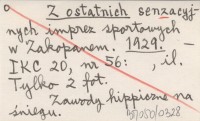 o Z ostatnich senzacyj-
nych imprez sportowych
w Zakopanem. 1929. -
IKC 20, nr 56: , il.
Tylko 2 fot.
Zawody hippiczne na
śniegu.
51/050/0328